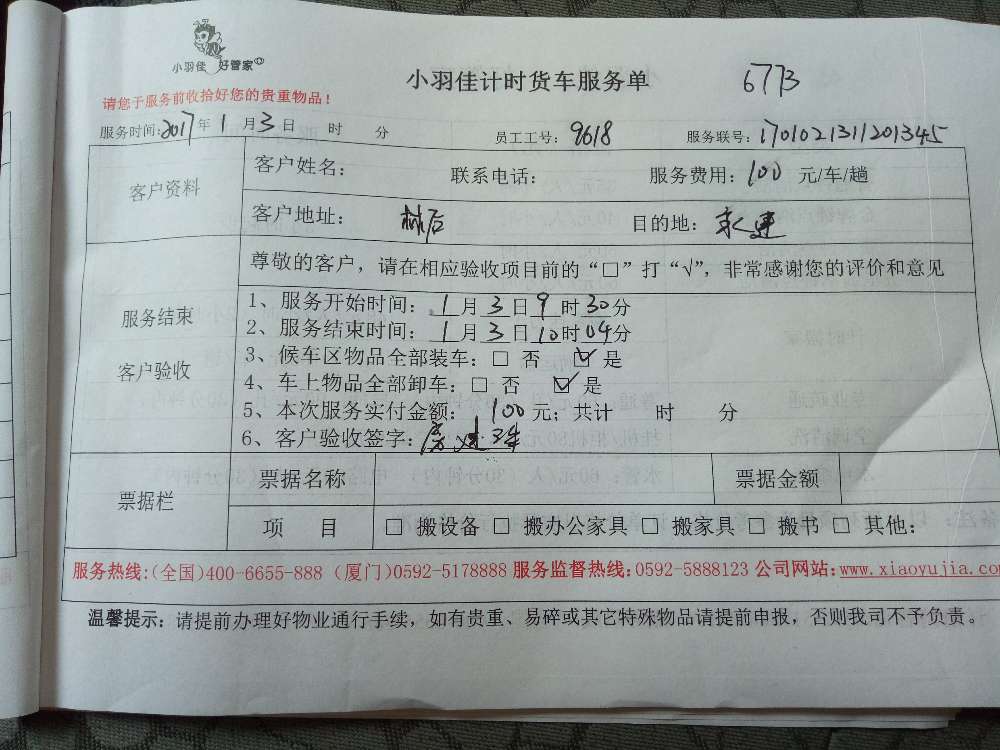 小羽佳 好管家
小羽佳计时货车服务单 6773
请您于服务前收拾好您的贵重物品！
服务时间：2017年1月3日 时 分 员工工号：9618 服务联号：1701021311201345
客户资料 客户姓名： 联系电话： 服务费用：100 元/车/趟
客户地址：林后 目的地：
尊敬的客户，请在相应验收项目前的“□”打“√”，非常感谢您的评价和意见
服务结束
客户验收
1、服务开始时间：1月3日9时30分
2、服务结束时间：1月3日10时04分
3、候车区物品全部装车：□ 否 ☑ 是
4、车上物品全部卸车：□ 否 ☑ 是
5、本次服务实付金额：100元；共计 时 分
6、客户验收签字：
票据栏 票据名称 票据金额
项 目 □ 搬设备 □ 搬办公家具 □ 搬家具 □ 搬书 □ 其他：
服务热线:(全国)400-6655-888 (厦门)0592-5178888 服务监督热线:0592-5888123 公司网站:www.xiaoyujia.co
温馨提示：请提前办理好物业通行手续，如有贵重、易碎或其它特殊物品请提前申报，否则我司不予负责。